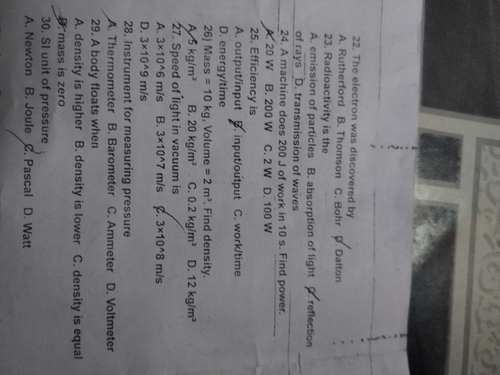 22. The electron was discovered by
A. Rutherford B. Thomson C. Bohr D. Dalton
23. Radioactivity is the
A. emission of particles B. absorption of light C. reflection
of rays D. transmission of waves
24. A machine does 200 J of work in 10 s. Find power.
A. 20 W B. 200 W C. 2 W D. 100 W
25. Efficiency is
A. output/input B. input/output C. work/time
D. energy/time
26) Mass = 10 kg, Volume = 2 m³. Find density.
A. 5 kg/m³ B. 20 kg/m³ C. 0.2 kg/m³ D. 12 kg/m³
27. Speed of light in vacuum is
A. 3×10^6 m/s B. 3×10^7 m/s C. 3×10^8 m/s
D. 3×10^9 m/s
28. Instrument for measuring pressure
A. Thermometer B. Barometer C. Ammeter D. Voltmeter
29. A body floats when
A. density is higher B. density is lower C. density is equal
D. mass is zero
30. SI unit of pressure
A. Newton B. Joule C. Pascal D. Watt